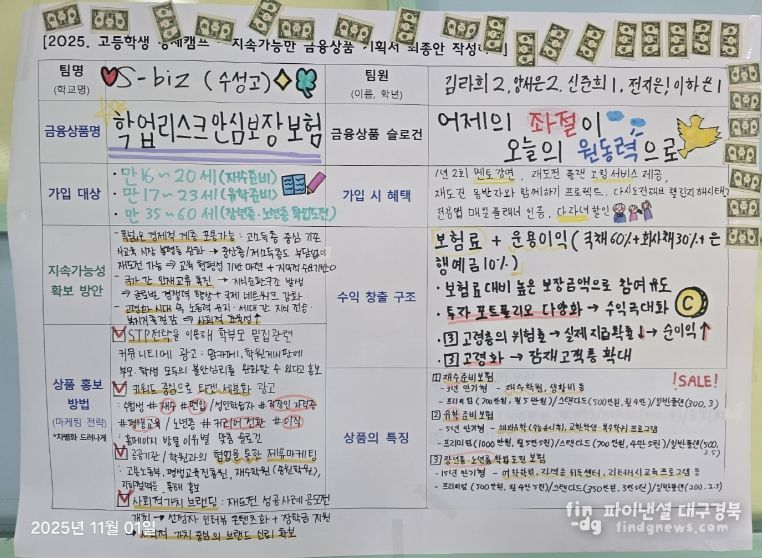 [2025. 고등학생 경제캠프 - 지속가능한 금융상품 기획서 최종안 작성
팀명
(학교명)
S-biz (수성고)
팀원
(이름, 학년)
김라희 2, 양서은 2, 신준희 1, 전지은1, 이하은 1
금융상품명
학업리스크안심보장보험
금융상품 슬로건
어제의 좌절이
오늘의 원동력으로
가입 대상
• 만 16~20세 (재수준비)
• 만 17~23세 (유학준비)
• 만 35~60세 (장년층·노년층 학업도전)
가입 시 혜택
1년 2회 멘토강연, 재도전 플랜 코칭서비스 제공,
재도전 동반자와 함께하기 프로젝트, 다시도전
인증, 다자녀할인
지속가능성
확보 방안
- 폭넓은 경제적 계층 포용가능 : 고소득층 중심 기존
사교육 시장 불평등 완화 → 중산층/저소득층도 부담없이
재도전 가능 → 교육 형평성 기반 마련 + 지속적 수요기반
- 국가간 인재교류 촉진 → 지식순환구조 형성
→ 글로벌 경쟁력 향상 + 국제 네트워크 강화
- 고령화 시대 속 노동력 유지·세대 간 지식 전승
→ 사회적 효율성↑
수익 창출 구조
보험료 + 운용이익 (국채 60% + 회사채 30% + 은
행예금 10%)
• 보험료 대비 높은 보장금액으로 참여 유도
• 투자 포트폴리오 다양화 → 수익극대화
• 3 고령층의 위험률 → 실제 지급확률↓ → 순이익↑
• 3 고령화 → 잠재고객층 확대
상품 홍보
방법
(마케팅 전략)
*차별화 드러나게
STP전략을 이용해 학부모 밀집관련
커뮤니티에 광고 : 맘카페, 학원게시판에
부모·학생 모두의 불안심리를 완화할 수 있다고 홍보
키워드 중심으로 타겟 세분화 광고
: 수험생 #재수 #편입 / 성인학습자 #직장인 자격증
#평생교육 / 노년층 #커리어 전환 #이직
: 홈페이지 방문 이유별 맞춤 슬로건
공공기관/학원과의 협업을 통한 제휴마케팅
: 고용노동부, 평생교육진흥원, 재수학원(종원학원),
통해 홍보
사회적가치 브랜딩 : 재도전 성공사례 공모전
개최 → 선정자 인터뷰 콘텐츠화 + 장학금 지원
→ 사회적 가치 중심의 브랜드 신뢰 확보
상품의 특징
!SALE!
1 재수준비보험
- 3년 만기형 - 재수학원, 생활비 등
- 프리미엄(700만원, 월 5만원)/스탠다드(500만원, 월 4만)/일반플랜(300, 3)
2 유학 준비 보험
- 5년 만기형
- 프리미엄(1000만원, 월 5만 5천)/스탠다드(700만원, 4만 5천)/일반플랜(500,
3.5)
3 장년층·노년층 학업도전 보험
- 15년 만기형 - 어학학원, 자격증 취득센터, 리터러시교육프로그램 등
- 프리미엄(500만원, 월 4만 5천)/스탠다드(350만원, 3만 5천)/일반플랜(200, 2.5)
2025년 11월 01일
fin dg 파이낸셜 대구경북
findgnews.com